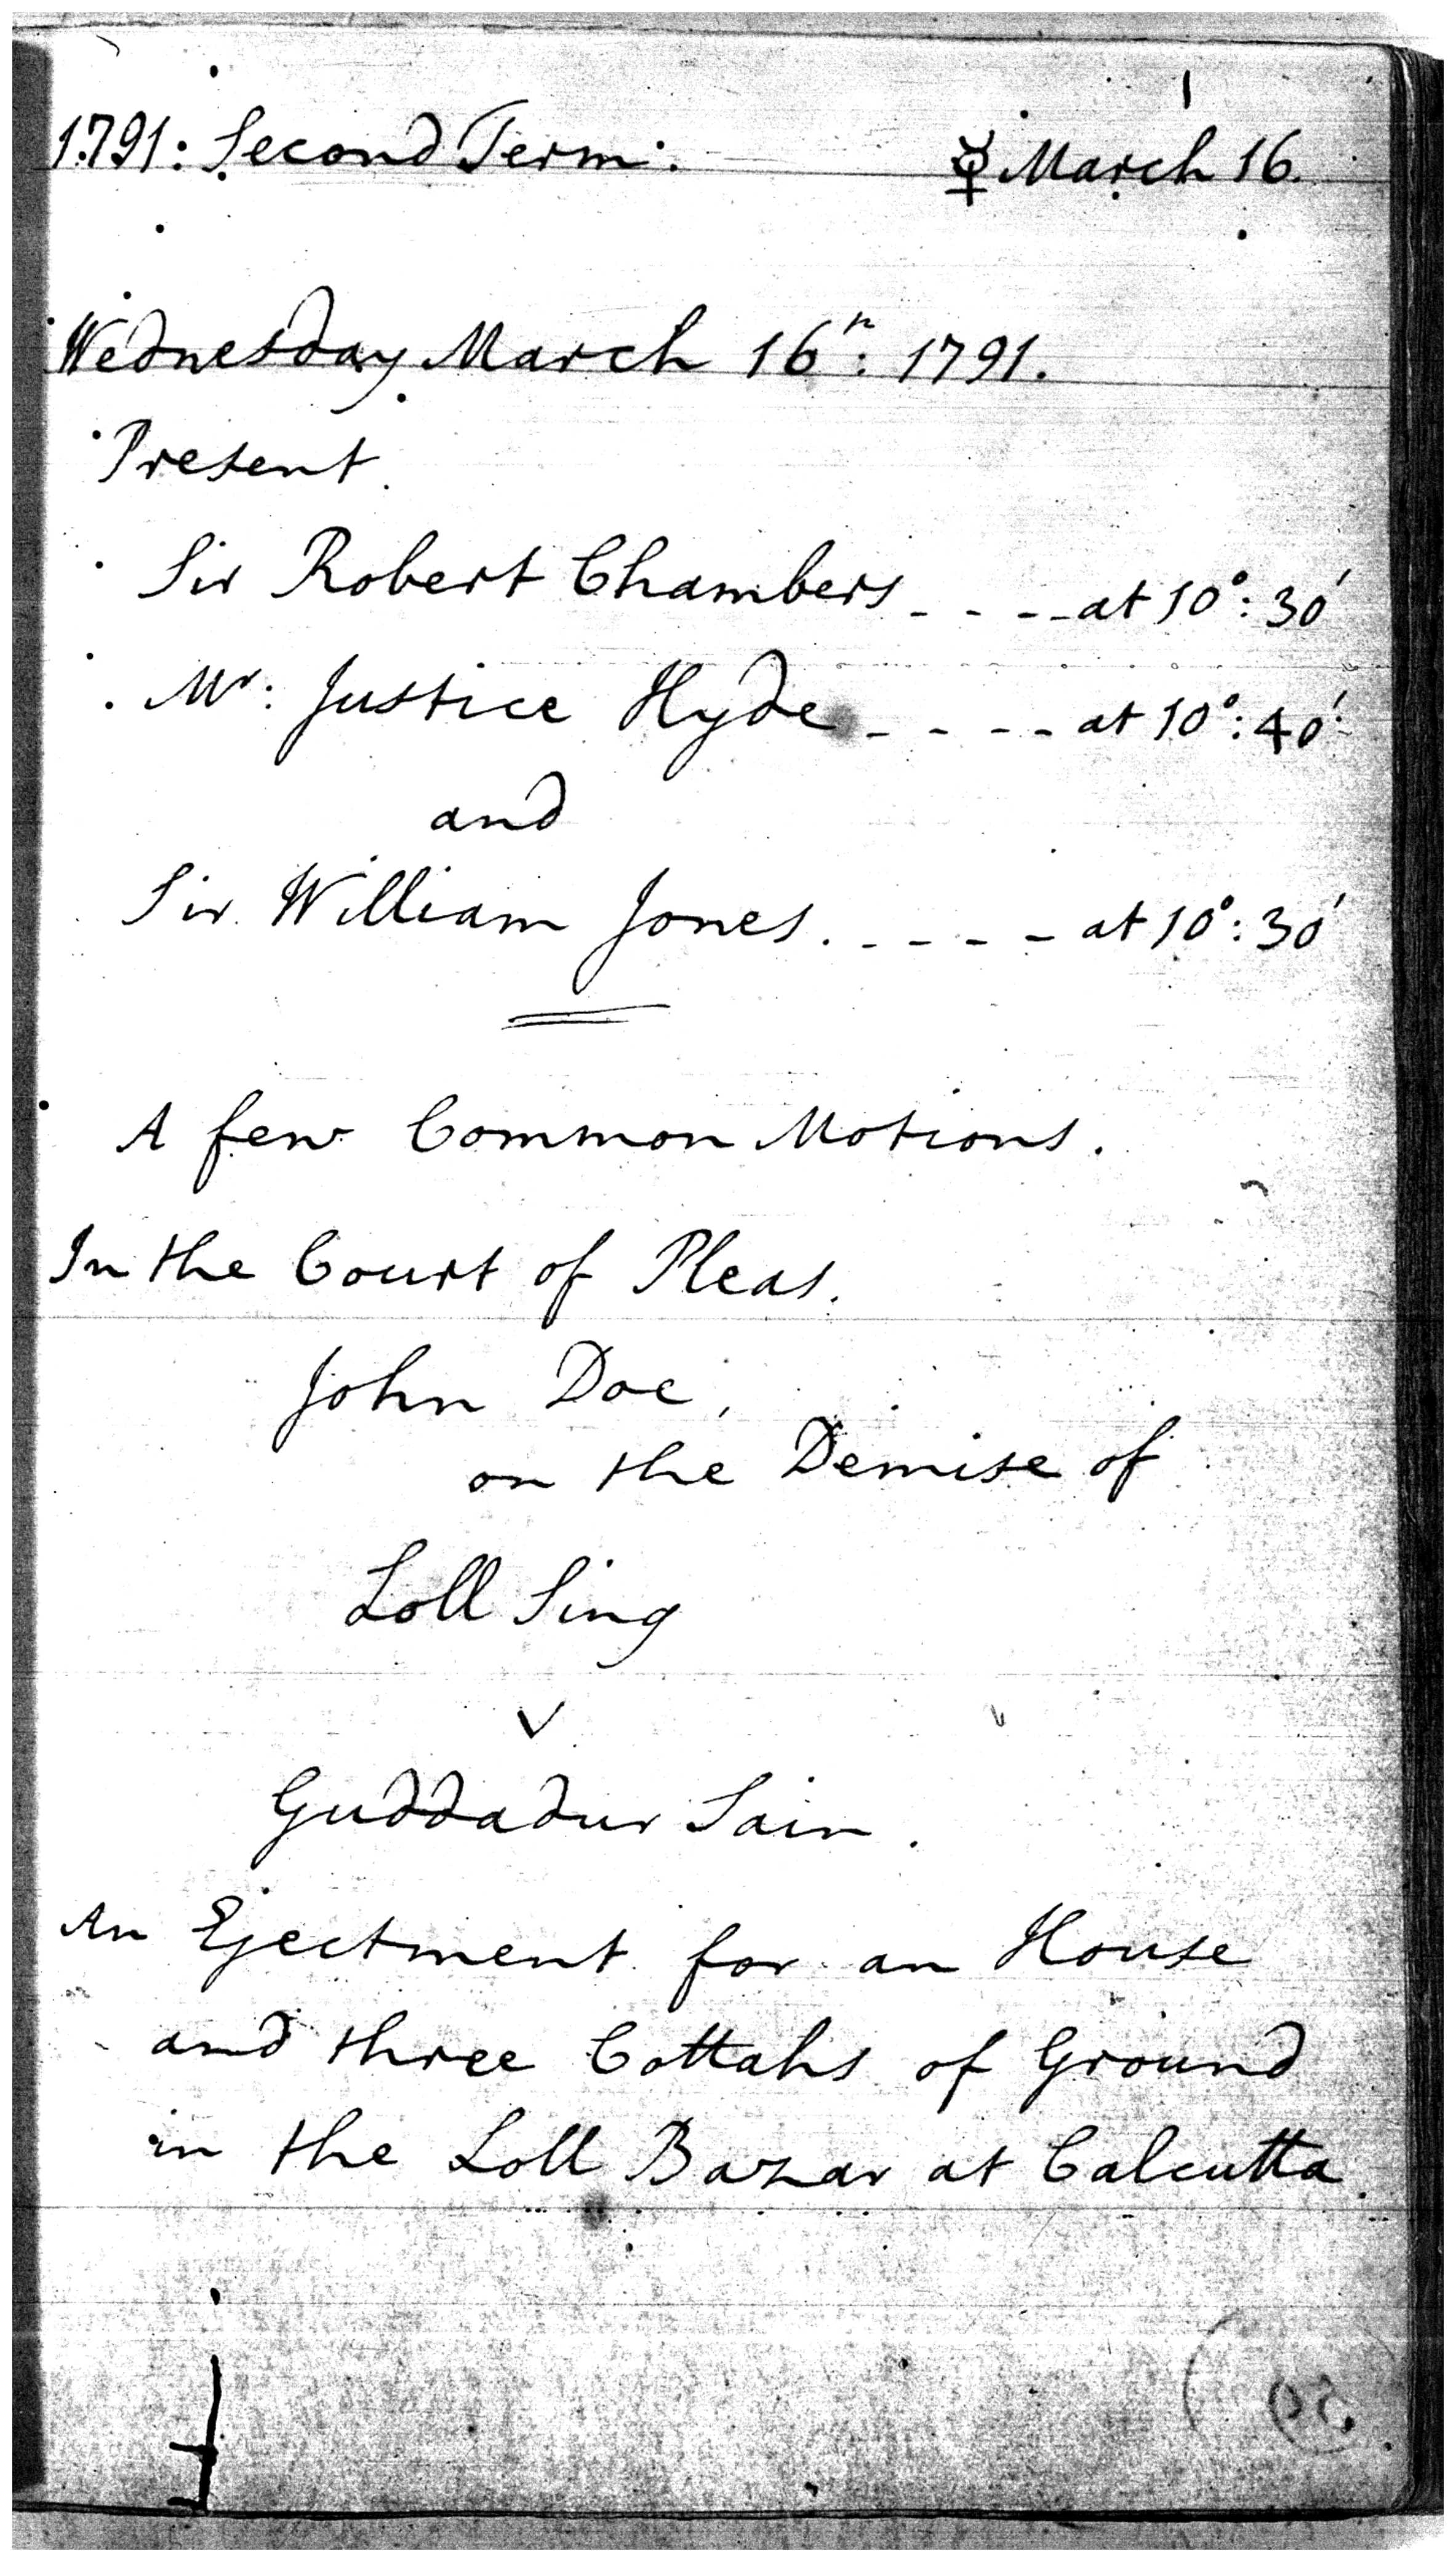 1
1791: Second Term. ☿ March 16.
Wednesday March 16th: 1791.
Present.
Sir Robert Chambers - - - - at 10°: 30'
Mr: Justice Hyde - - - - at 10°: 40'
and
Sir William Jones. - - - - at 10°: 30'
A few Common Motions.
In the Court of Pleas.
John Doe,
on the Demise of
Loll Sing
v
Guddadur Sain.
An Ejectment for an House
and three Cottahs of Ground
in the Loll Bazar at Calcutta.